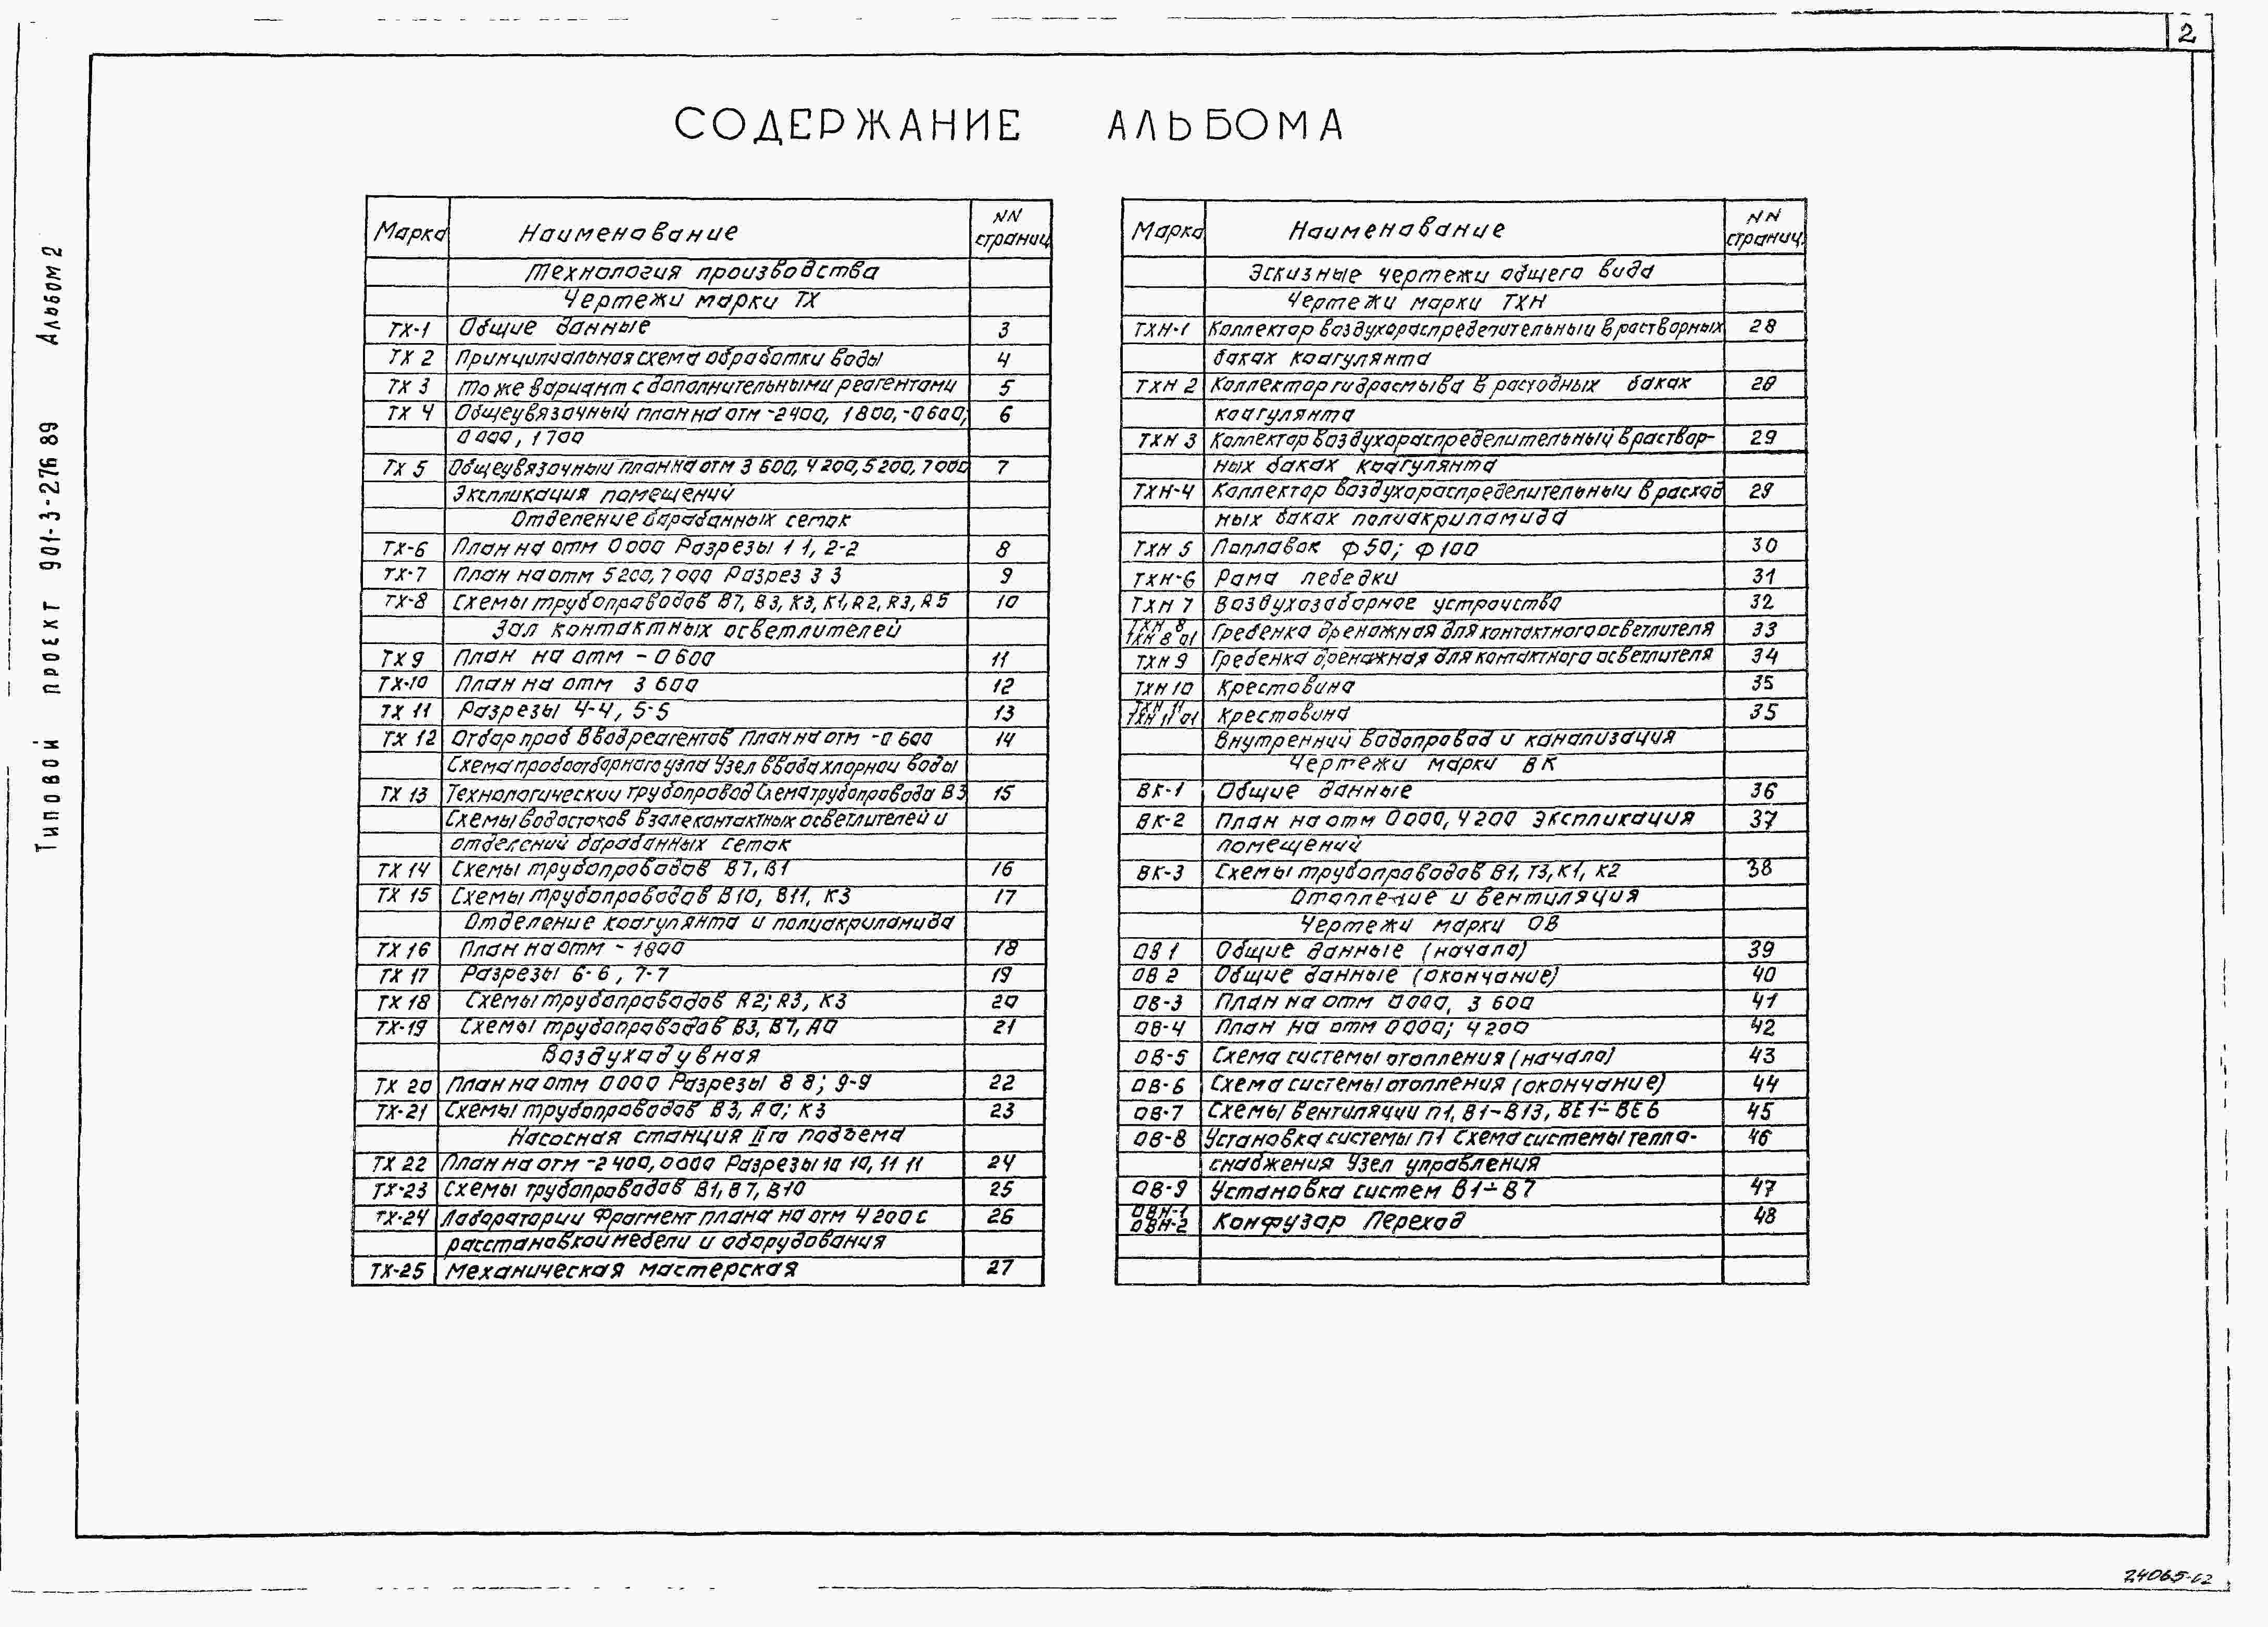 2
СОДЕРЖАНИЕ АЛЬБОМА
Типовой проект 901-3-276 89 Альбом 2
Марка Наименование NN страниц
Технология производства
Чертежи марки ТХ
ТХ-1 Общие данные 3
ТХ 2 Принципиальная схема обработки воды 4
ТХ 3 То же вариант с дополнительными реагентами 5
ТХ 4 Общеувязочный план на отм -2400, 1800, -0600, 6
0 000, 1 700
ТХ 5 Общеувязочный план на отм 3 600, 4 200, 5 200, 7 000 7
Экспликация помещений
Отделение барабанных сеток
ТХ-6 План на отм 0 000 Разрезы 1 1, 2-2 8
ТХ-7 План на отм 5 200, 7 000 Разрез 3 3 9
ТХ-8 Схемы трубопроводов В7, В3, К3, К1, R2, R3, R5 10
Зал контактных осветлителей
ТХ 9 План на отм - 0 600 11
ТХ-10 План на отм 3 600 12
ТХ 11 Разрезы 4-4, 5-5 13
ТХ 12 Отбор проб Ввод реагентов План на отм -0 600 14
Схема пробоотборного узла Узел ввода хлорной воды
ТХ 13 Технологический трубопровод Схема трубопровода В3 15
Схемы водостоков в зале контактных осветлителей и
отделений барабанных сеток
ТХ 14 Схемы трубопроводов В7, В1 16
ТХ 15 Схемы трубопроводов В10, В11, К3 17
Отделение коагулянта и полиакриламида
ТХ 16 План на отм - 1800 18
ТХ 17 Разрезы 6-6, 7-7 19
ТХ 18 Схемы трубопроводов R2; R3, К3 20
ТХ-19 Схемы трубопроводов В3, В7, А0 21
Воздуходувная
ТХ 20 План на отм 0 000 Разрезы 8 8; 9-9 22
ТХ-21 Схемы трубопроводов В3, А0; К3 23
Насосная станция II го подъема
ТХ 22 План на отм -2 400, 0 000 Разрезы 10 10, 11 11 24
ТХ-23 Схемы трубопроводов В1, В7, В10 25
ТХ-24 Лаборатории Фрагмент плана на отм 4 200 с 26
расстановкой мебели и оборудования
ТХ-25 Механическая мастерская 27
Марка Наименование NN страниц.
Эскизные чертежи общего вида
Чертежи марки ТХН
ТХН-1 Коллектор воздухораспределительный в растворных 28
баках коагулянта
ТХН 2 Коллектор гидросмыва в расходных баках 28
коагулянта
ТХН 3 Коллектор воздухораспределительный в раствор- 29
ных баках коагулянта
ТХН-4 Коллектор воздухораспределительный в расход 29
ных баках полиакриламида
ТХН 5 Поплавок ф 50; ф 100 30
ТХН-6 Рама лебедки 31
ТХН 7 Воздухозаборное устройство 32
ТХН 8 ТХН 8 01 Гребенка дренажная для контактного осветлителя 33
ТХН 9 Гребенка дренажная для контактного осветлителя 34
ТХН 10 Крестовина 35
ТХН 11 ТХН 11 01 Крестовина 35
Внутренний водопровод и канализация
Чертежи марки ВК
ВК-1 Общие данные 36
ВК-2 План на отм 0 000, 4 200 Экспликация 37
помещений
ВК-3 Схемы трубопроводов В1, Т3, К1, К2 38
Отопление и вентиляция
Чертежи марки ОВ
ОВ 1 Общие данные (начало) 39
ОВ 2 Общие данные (окончание) 40
ОВ-3 План на отм 0 000, 3 600 41
ОВ-4 План на отм 0 000; 4 200 42
ОВ-5 Схема системы отопления (начало) 43
ОВ-6 Схема системы отопления (окончание) 44
ОВ-7 Схемы вентиляции П1, В1÷В13, ВЕ1÷ВЕ6 45
ОВ-8 Установка системы П1 Схема системы тепло- 46
снабжения Узел управления
ОВ-9 Установка систем В1÷В7 47
ОВН-1 ОВН-2 Конфузор Переход 48
24065-02